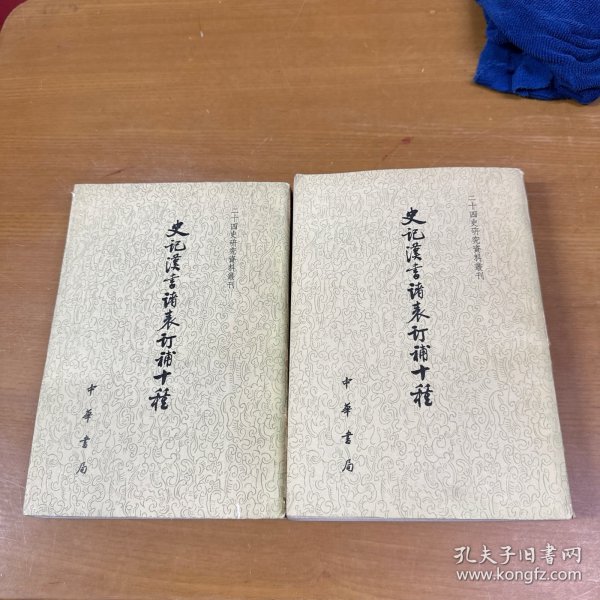 二十四史研究資料叢刊
史記漢書諸表訂補十種
中華書局
二十四史研究資料叢刊
史記漢書諸表訂補十種
中華書局
孔夫子旧书网
www.kongfz.com